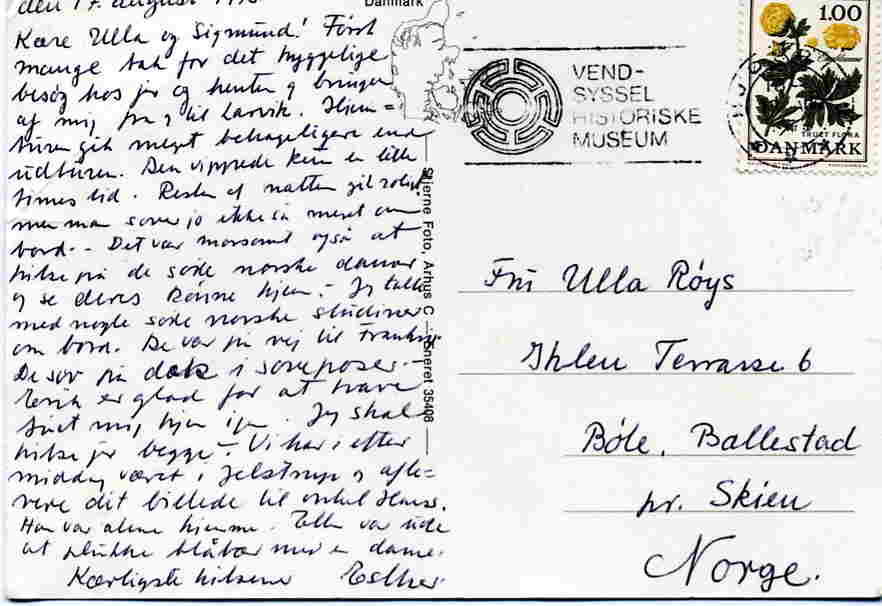 den 17. august
Danmark
Kære Ulla og Sigmund! Først
mange tak for det hyggelige
besøg hos jer og henten og bringen
af mig fra og til Larvik. Hjem=
turen gik meget behageligere end
udturen. Den vippede kun en lille
times tid. Resten af natten gik roligt
men man sover jo ikke så meget om
bord. - Det var morsomt også at
hilse på de søde norske damer
og se deres kønne hjem. - Jeg talte
med nogle søde norske studiner
om bord. De var på vej til Frankrig
De sov på dæk i soveposer. -
Erik er glad for at have
fået mig hjem igen. Jeg skal
hilse jer begge. - Vi har i efter
middag været i Jelstrup og afle=
vere dit billede til onkel Hans.
Han var alene hjemme. Ellen var ude
at plukke blåbær med en dame.
Kærligste hilsener Esther
Stjerne Foto, Århus C — Eneret 35408
VEND-
SYSSEL
HISTORISKE
MUSEUM
1.00
TRUET FLORA
DANMARK
Fru Ulla Röys
Ihlen Terrasse 6
Böle, Ballestad
pr. Skien
Norge.